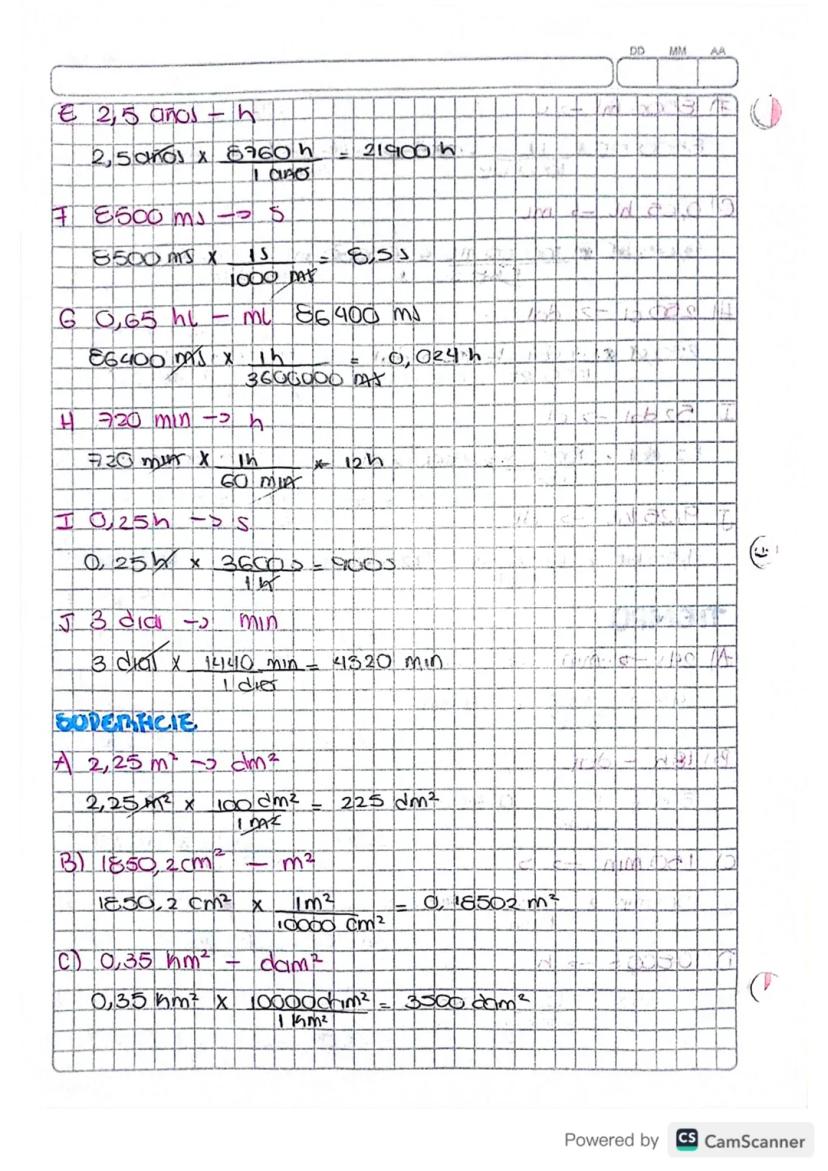 DD MM AA
E 2,5 años - h
2,5 años x 8760 h / 1 años = 21900 h
F 8500 ms -> s
8500 ms x 1s / 1000 ms = 8,5 s
G 0,65 hl - ml 86400 ms
86400 ms x 1h / 3600000 ms = 0,024 h
H 720 min -> h
720 min x 1h / 60 min = 12h
I 0,25h -> s
0,25h x 3600 s / 1 h = 900s
J 3 dias -> min
3 dias x 1440 min / 1 dias = 4320 min
SUPERFICIE
A 2,25 m² -> dm²
2,25 m² x 100 dm² / 1 m² = 225 dm²
B) 1850,2 cm² - m²
1850,2 cm² x 1m² / 10000 cm² = 0,18502 m²
C) 0,35 km² - dam²
0,35 km² x 10000 dam² / 1 km² = 3500 dam²
Powered by CS CamScanner